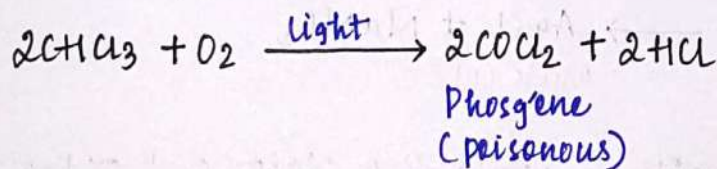 2CHCl3 + O2 light → 2COCl2 + 2HCl
Phosgene
(poisonous)